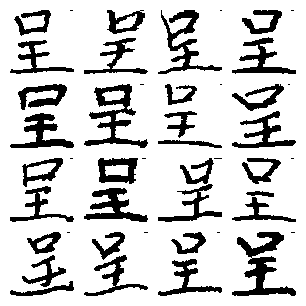 呈呈呈呈
呈呈呈呈
呈呈呈呈
呈呈呈呈